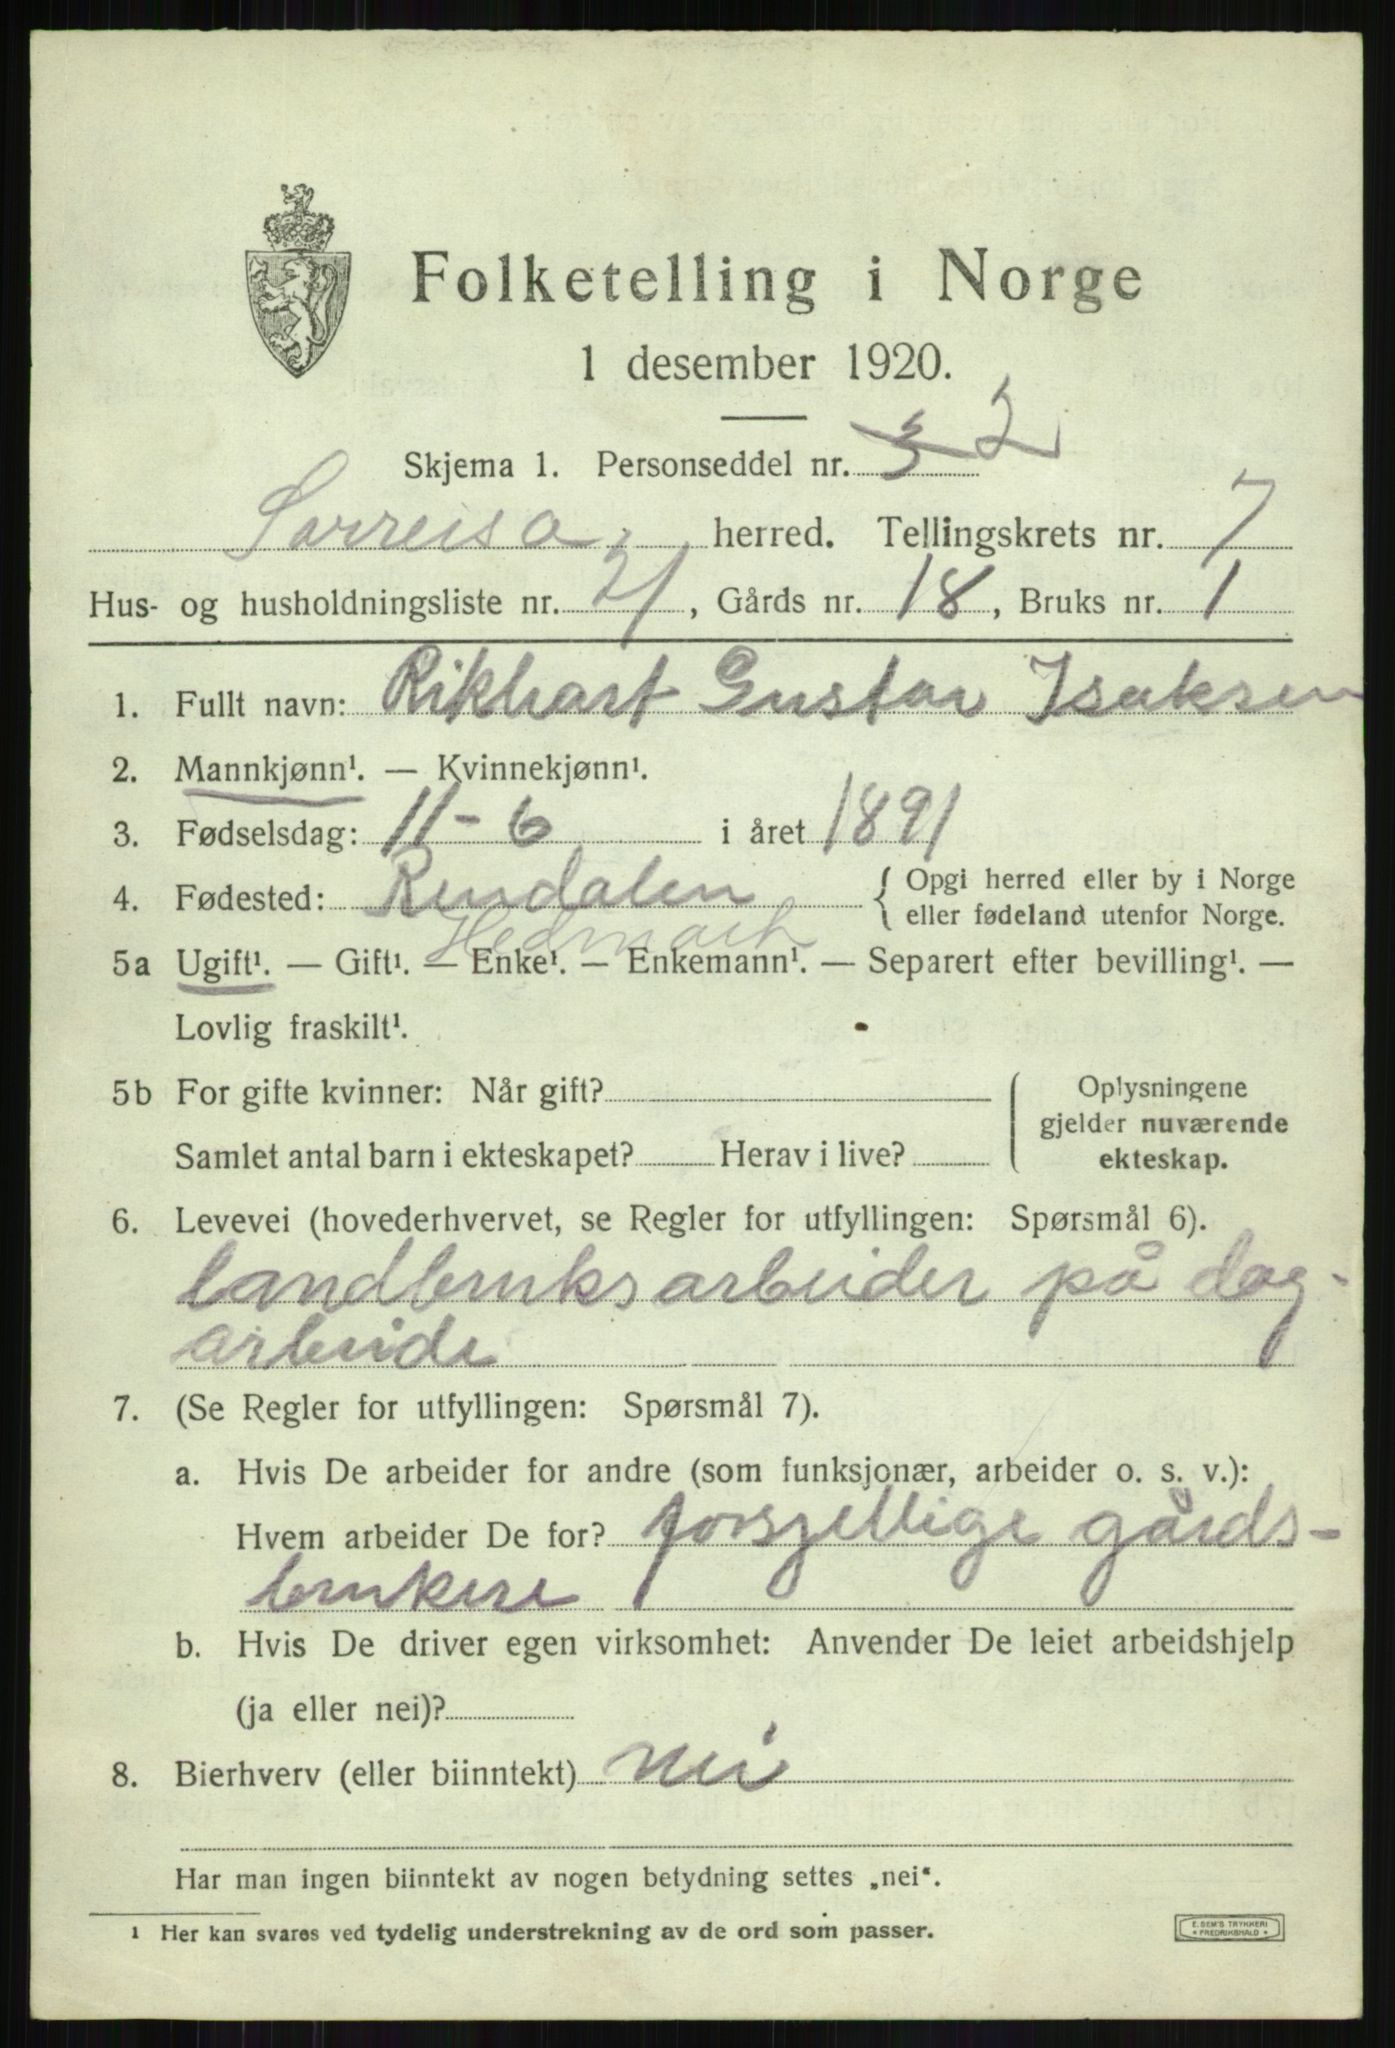 Folketelling i Norge
1 desember 1920.
Skjema 1. Personseddel nr. 3 2
Sørreisa herred. Tellingskrets nr. 7
Hus- og husholdningsliste nr. 21, Gårds nr. 18, Bruks nr. 1
1. Fullt navn: Rikhart Gustav Isaksen
2. Mannkjønn¹. — Kvinnekjønn¹.
3. Fødselsdag: 11-6 i året 1891
4. Fødested: Rendalen { Opgi herred eller by i Norge
eller fødeland utenfor Norge.
Hedmark
5a Ugift¹. — Gift¹. — Enke¹. — Enkemann¹. — Separert efter bevilling¹. —
Lovlig fraskilt¹.
5b For gifte kvinner: Når gift? Oplysningene
gjelder nuværende
Samlet antal barn i ekteskapet? Herav i live? ekteskap.
6. Levevei (hovederhvervet, se Regler for utfyllingen: Spørsmål 6).
landbruksarbeider på dag-
arbeide
7. (Se Regler for utfyllingen: Spørsmål 7).
a. Hvis De arbeider for andre (som funksjonær, arbeider o. s. v.):
Hvem arbeider De for? forsjellige gårds-
brukere
b. Hvis De driver egen virksomhet: Anvender De leiet arbeidshjelp
(ja eller nei)?
8. Bierhverv (eller biinntekt) nei
Har man ingen biinntekt av nogen betydning settes „nei“.
¹ Her kan svares ved tydelig understrekning av de ord som passer.
E. SEM'S TRYKKERI
* FREDRIKSHALD *